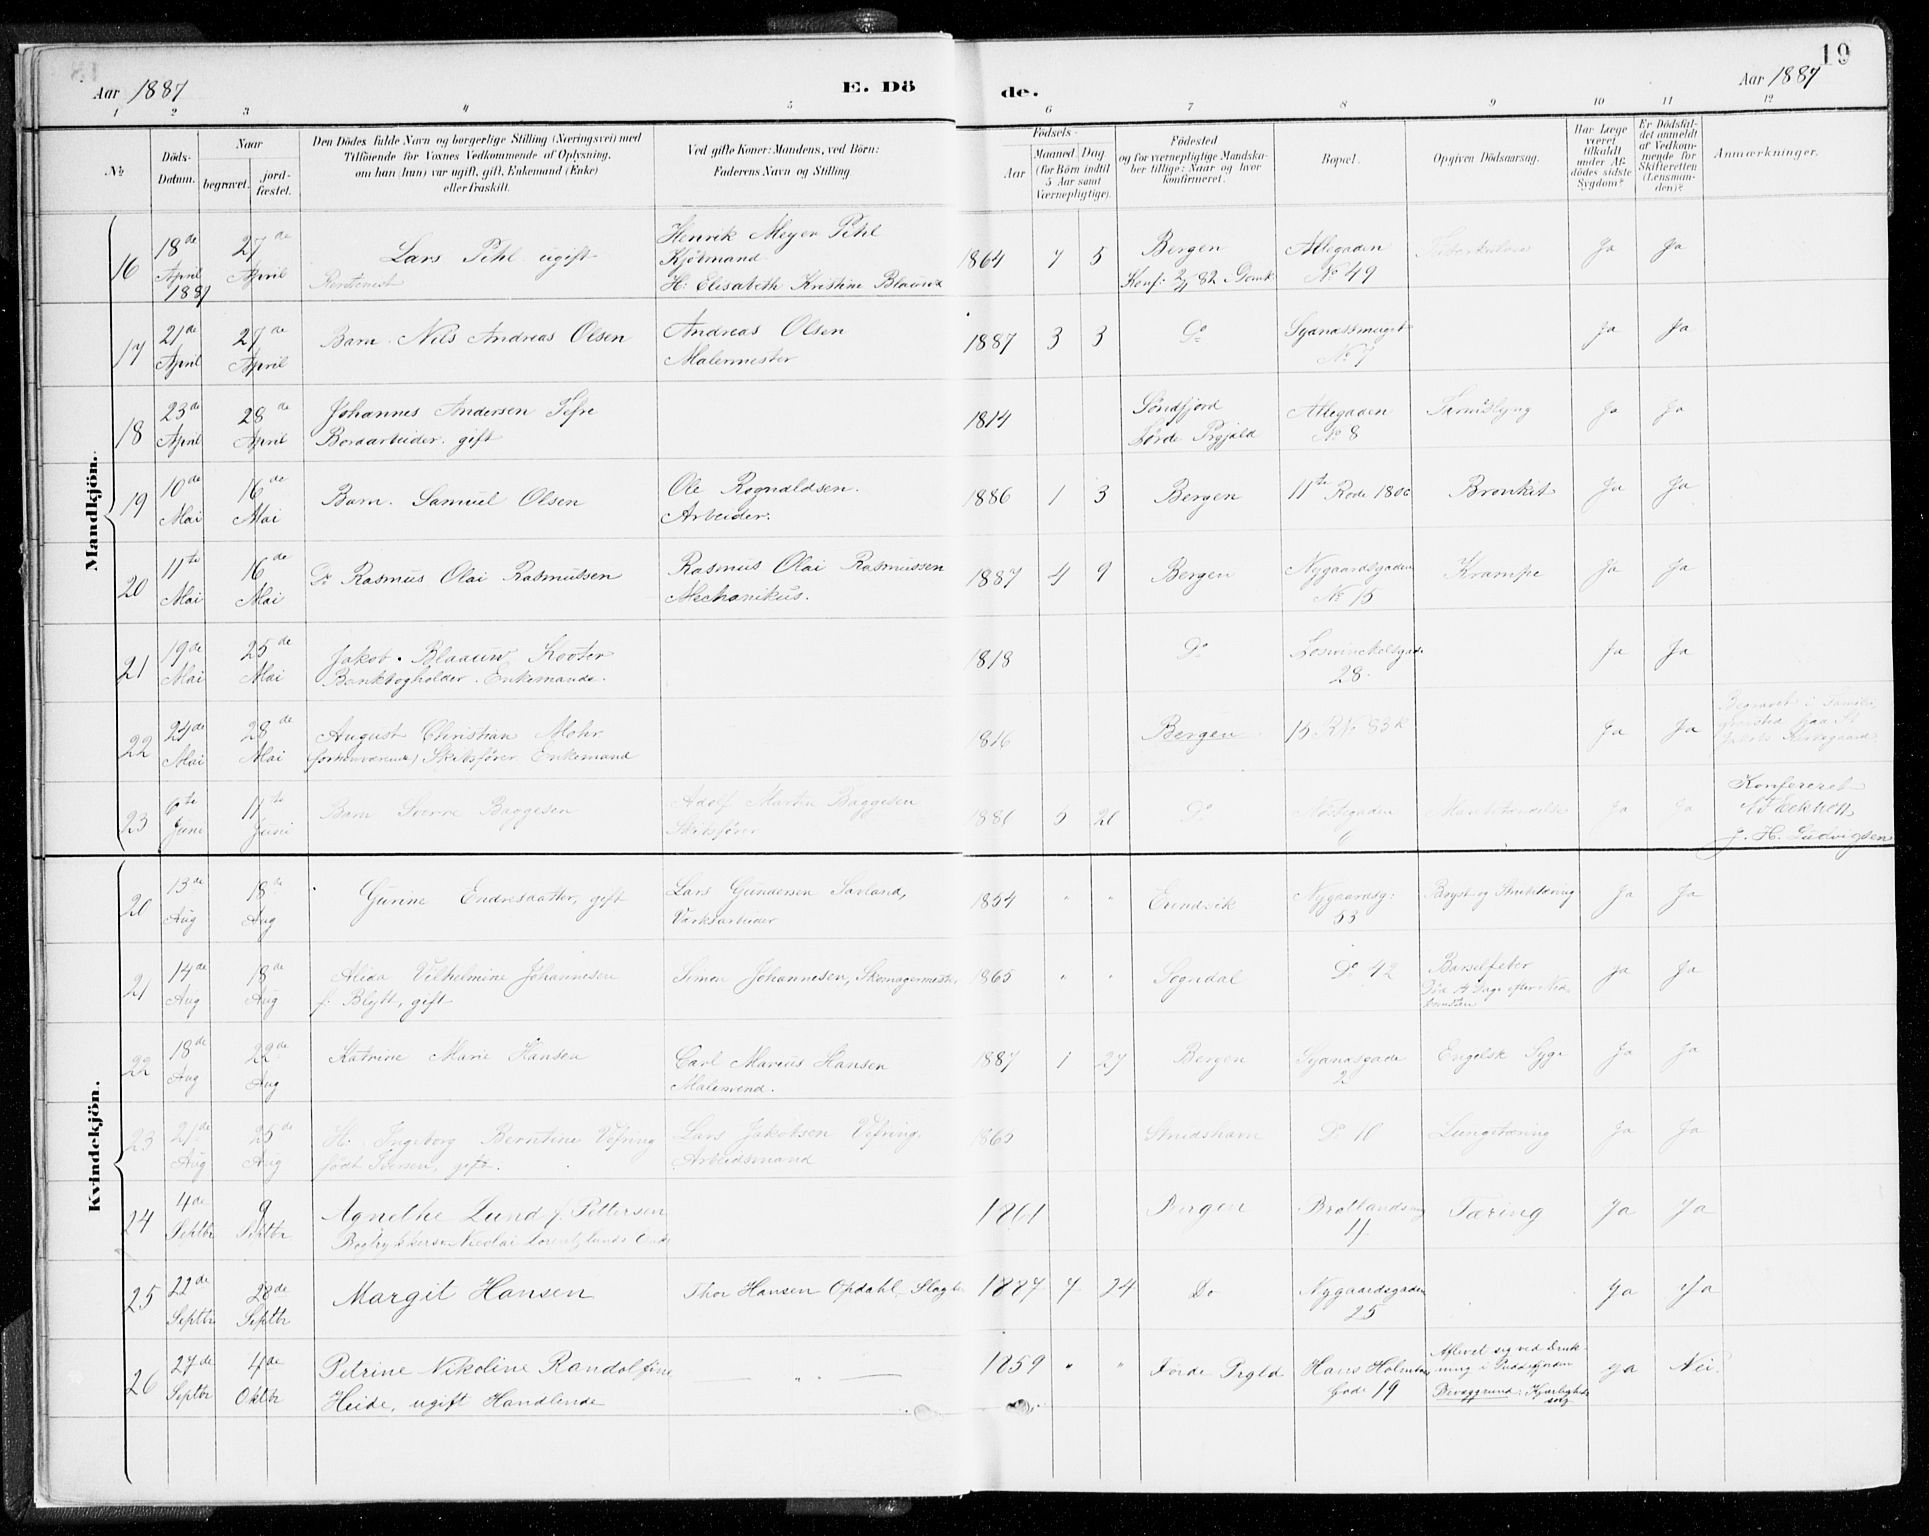 19
Aar 1887
E. Dö
de.
Aar 1887
1 2 3 4 5 6 7 8 9 10 11 12
№
Döds-Datum.
Naar
begravet.
jord-fæstet.
Den Dödes fulde Navn og borgerlige Stilling (Næringsvei) med
Tilföiende for Voxnes Vedkommende af Oplysning,
om han (hun) var ugift, gift, Enkemand (Enke)
eller fraskilt.
Ved gifte Koner: Mandens, ved Börn:
Faderens Navn og Stilling.
Födsels-
Aar
Maaned Dag
(for Börn indtil
5 Aar samt
Værnepligtige).
Födested
og for værnepligtige Mandska-
ber tillige: Naar og hvor
konfirmeret.
Bopæl.
Opgiven Dödsaarsag.
Har Læge
været
tilkaldt
under Af-
dödes sidste
Sygdom?
Er Dödsfal-
det anmeldt
af Vedkom-
mende for
Skifteretten
(Lensman-
den)?
Anmærkninger.
Mandkjön.
16 18de April 1887 27de April Lars Pihl ugift Rentenist Henrik Meyer Pihl Kjøbmand H: Elisabeth Kristine Blaauw 1864 7 5 Bergen Konf: 2/4 82 Domk Allegaden No 49 Tuberkulose Ja Ja
17 21de April 27de April Barn Nils Andreas Olsen Andreas Olsen Malermester 1887 3 3 Do Sydnæssmuget No 7 Ja Ja
18 23de April 28de April Johannes Andersen Tefre Bordarbeider. gift 1814 Söndfjord Förde Prgjæld Allegaden No 8 Ja Ja
19 10de Mai 16de Mai Barn. Samuel Olsen Ole Rognaldsen. Arbeider. 1886 1 3 Bergen 11te Rode Bronkit Ja Ja
20 11te Mai 16de Mai Do Rasmus Olai Rasmussen Rasmus Olai Rasmussen Mechanikus. 1887 4 9 Bergen Nygaardsgaden No 15 Krampe Ja Ja
21 19de Mai 25de Mai Jakob Blaauw Kooter Bankbogholder. Enkemand. 1818 Do 28 Ja Ja
22 24de Mai 28de Mai August Christian Mohr (forhenværende) Skibsfører. Enkemand 1816 Bergen 15 R No 83k Ja Ja Begravet i Familiegravsted paa St Jakobs Kirkegaard
23 6te Juni 11te Juni Barn Sverre Baggesen Adolf Martin Baggesen Skibsfører 5 20 Do Nøstegaden 6 Ja Ja Konfereret J. H. Ludvigsen
Kvindekjön.
20 13de Aug 18de Aug Gurine Endresdatter, gift Lars Gundersen Savland, Værksarbeider 1854 " " Evindvik Nygaardsg: 53 Bryst og Strubetæring Ja Ja
21 14de Aug 18de Aug Alida Vilhelmine Johannesen f: Blytt, gift Simon Johannesen, Skomagermester 1865 " " Sogndal Do 42 Barselfeber Död 4 Dage efter Nedkomsten Ja Ja
22 18de Aug 22de Aug Katrine Marie Hansen Carl Marius Hansen Malersvend. 1887 1 27 Bergen Sydnæsgade 2 Engelsk Syge Ja Ja
23 21de Aug 25de Aug H: Ingeborg Berntine Vefring född Iversen, gift. Lars Jakobsen Vefring, Arbeidsmand 1865 Strudshavn Do 10 Lungetæring Ja Ja
24 4de Septbr 9 Septbr Agnethe Lund f. Pettersen Bogtrykkersv. Nicolai Lorentz Lunds Enke 1861 Bergen 4 Tæring Ja Ja
25 22de Septbr 28de Septbr Margit Hansen Thor Hansen Opdahl, Slagter 1887 7 24 Do Nygaardsgaden 25 Ja Ja
26 27de Septbr 4de Oktbr Petrine Nikoline Randolfine Heide, ugift Handlende — " — 1859 " " Förde Prgld Hans Holmboes Gade 19 Aflivet sig ved Drukning i Puddefjorden Bevæggrund: Kjærlighedssorg Ja Nei.